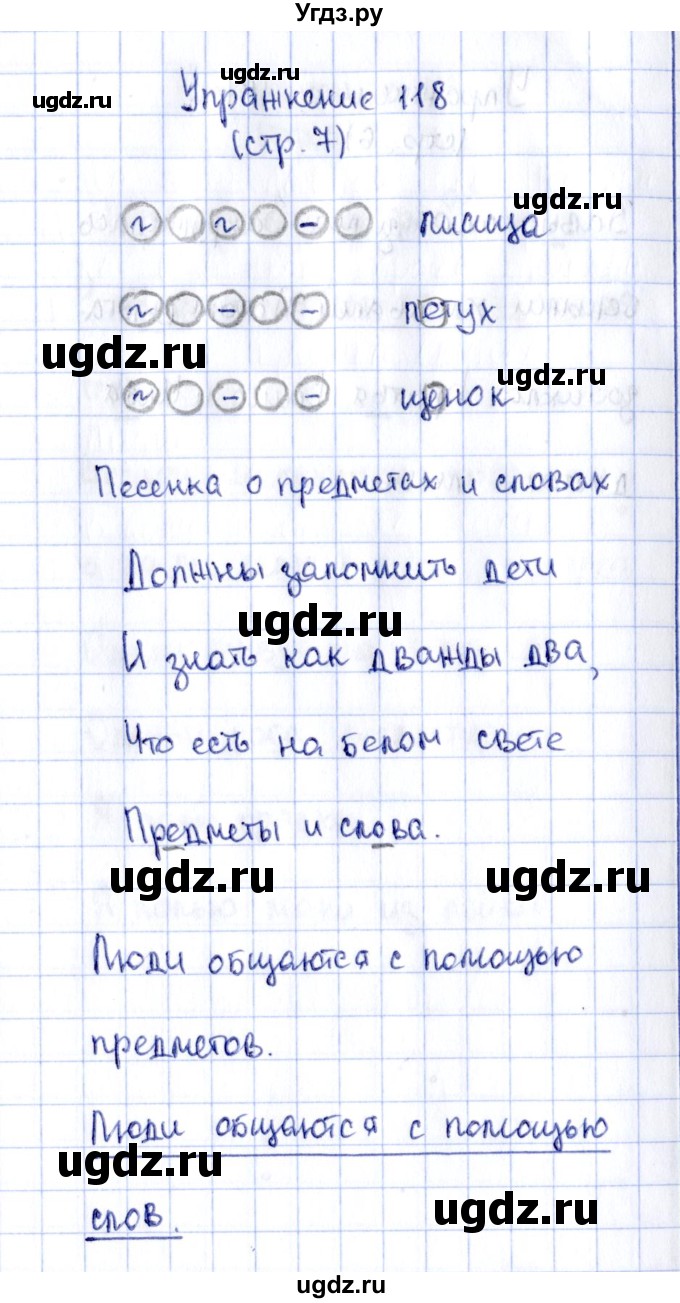 Угдз.ру
ugdz.ru
ugdz.ru
Упражнение 118
(стр. 7)
ugdz.ru
~ ~ - лисица
~ - - петух
ugdz.ru
ugdz.ru
~ - - щенок
Песенка о предметах и словах
Должны запомнить дети
ugdz.ru
И знать как дважды два,
Что есть на белом свете
Предметы и слова.
ugdz.ru
ugdz.ru
Люди общаются с помощью
предметов.
Люди общаются с помощью
ugdz.ru
ugdz.ru
слов.
ugdz.ru